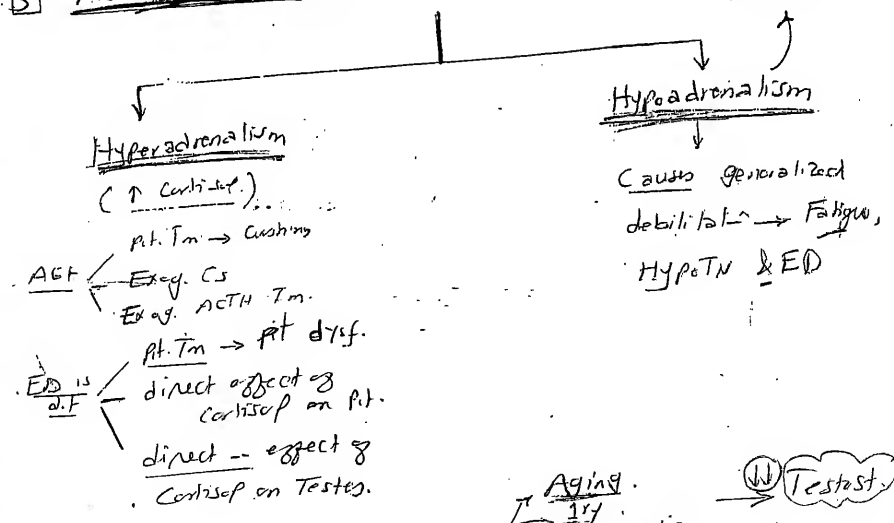 B
Hyperadrenalism
(↑ Cortisol)
AET
Pit. Tm → Cushing
Exog. Cs
Exog. ACTH Tm.
ED is d.t
Pit. Tm → pit dysf.
direct effect of
Cortisol on Pit.
direct -- effect of
Cortisol on Testes.
Hypoadrenalism
Causes generalized
debilitatn → Fatigue,
HypoTN & ED
Aging.
1ry
↓↓ Testost.